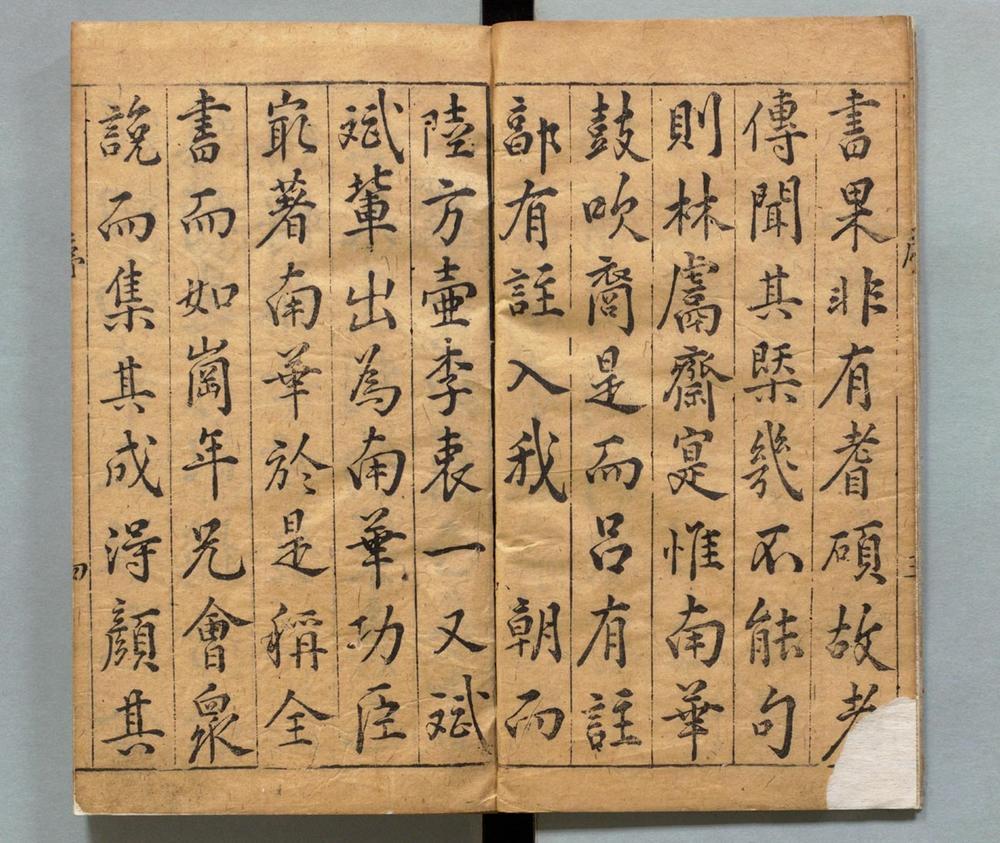 書果非有耆碩故老
傳聞其槩幾不能句
則林鬳齋寔惟南華
鼓吹裔是而呂有註
郭有註入我朝而
陸方壺李衷一又斌
斌輩出為南華功臣
冣著南華於是稱全
書而如崗年兄會衆
說而集其成淂顏其
序
四
三